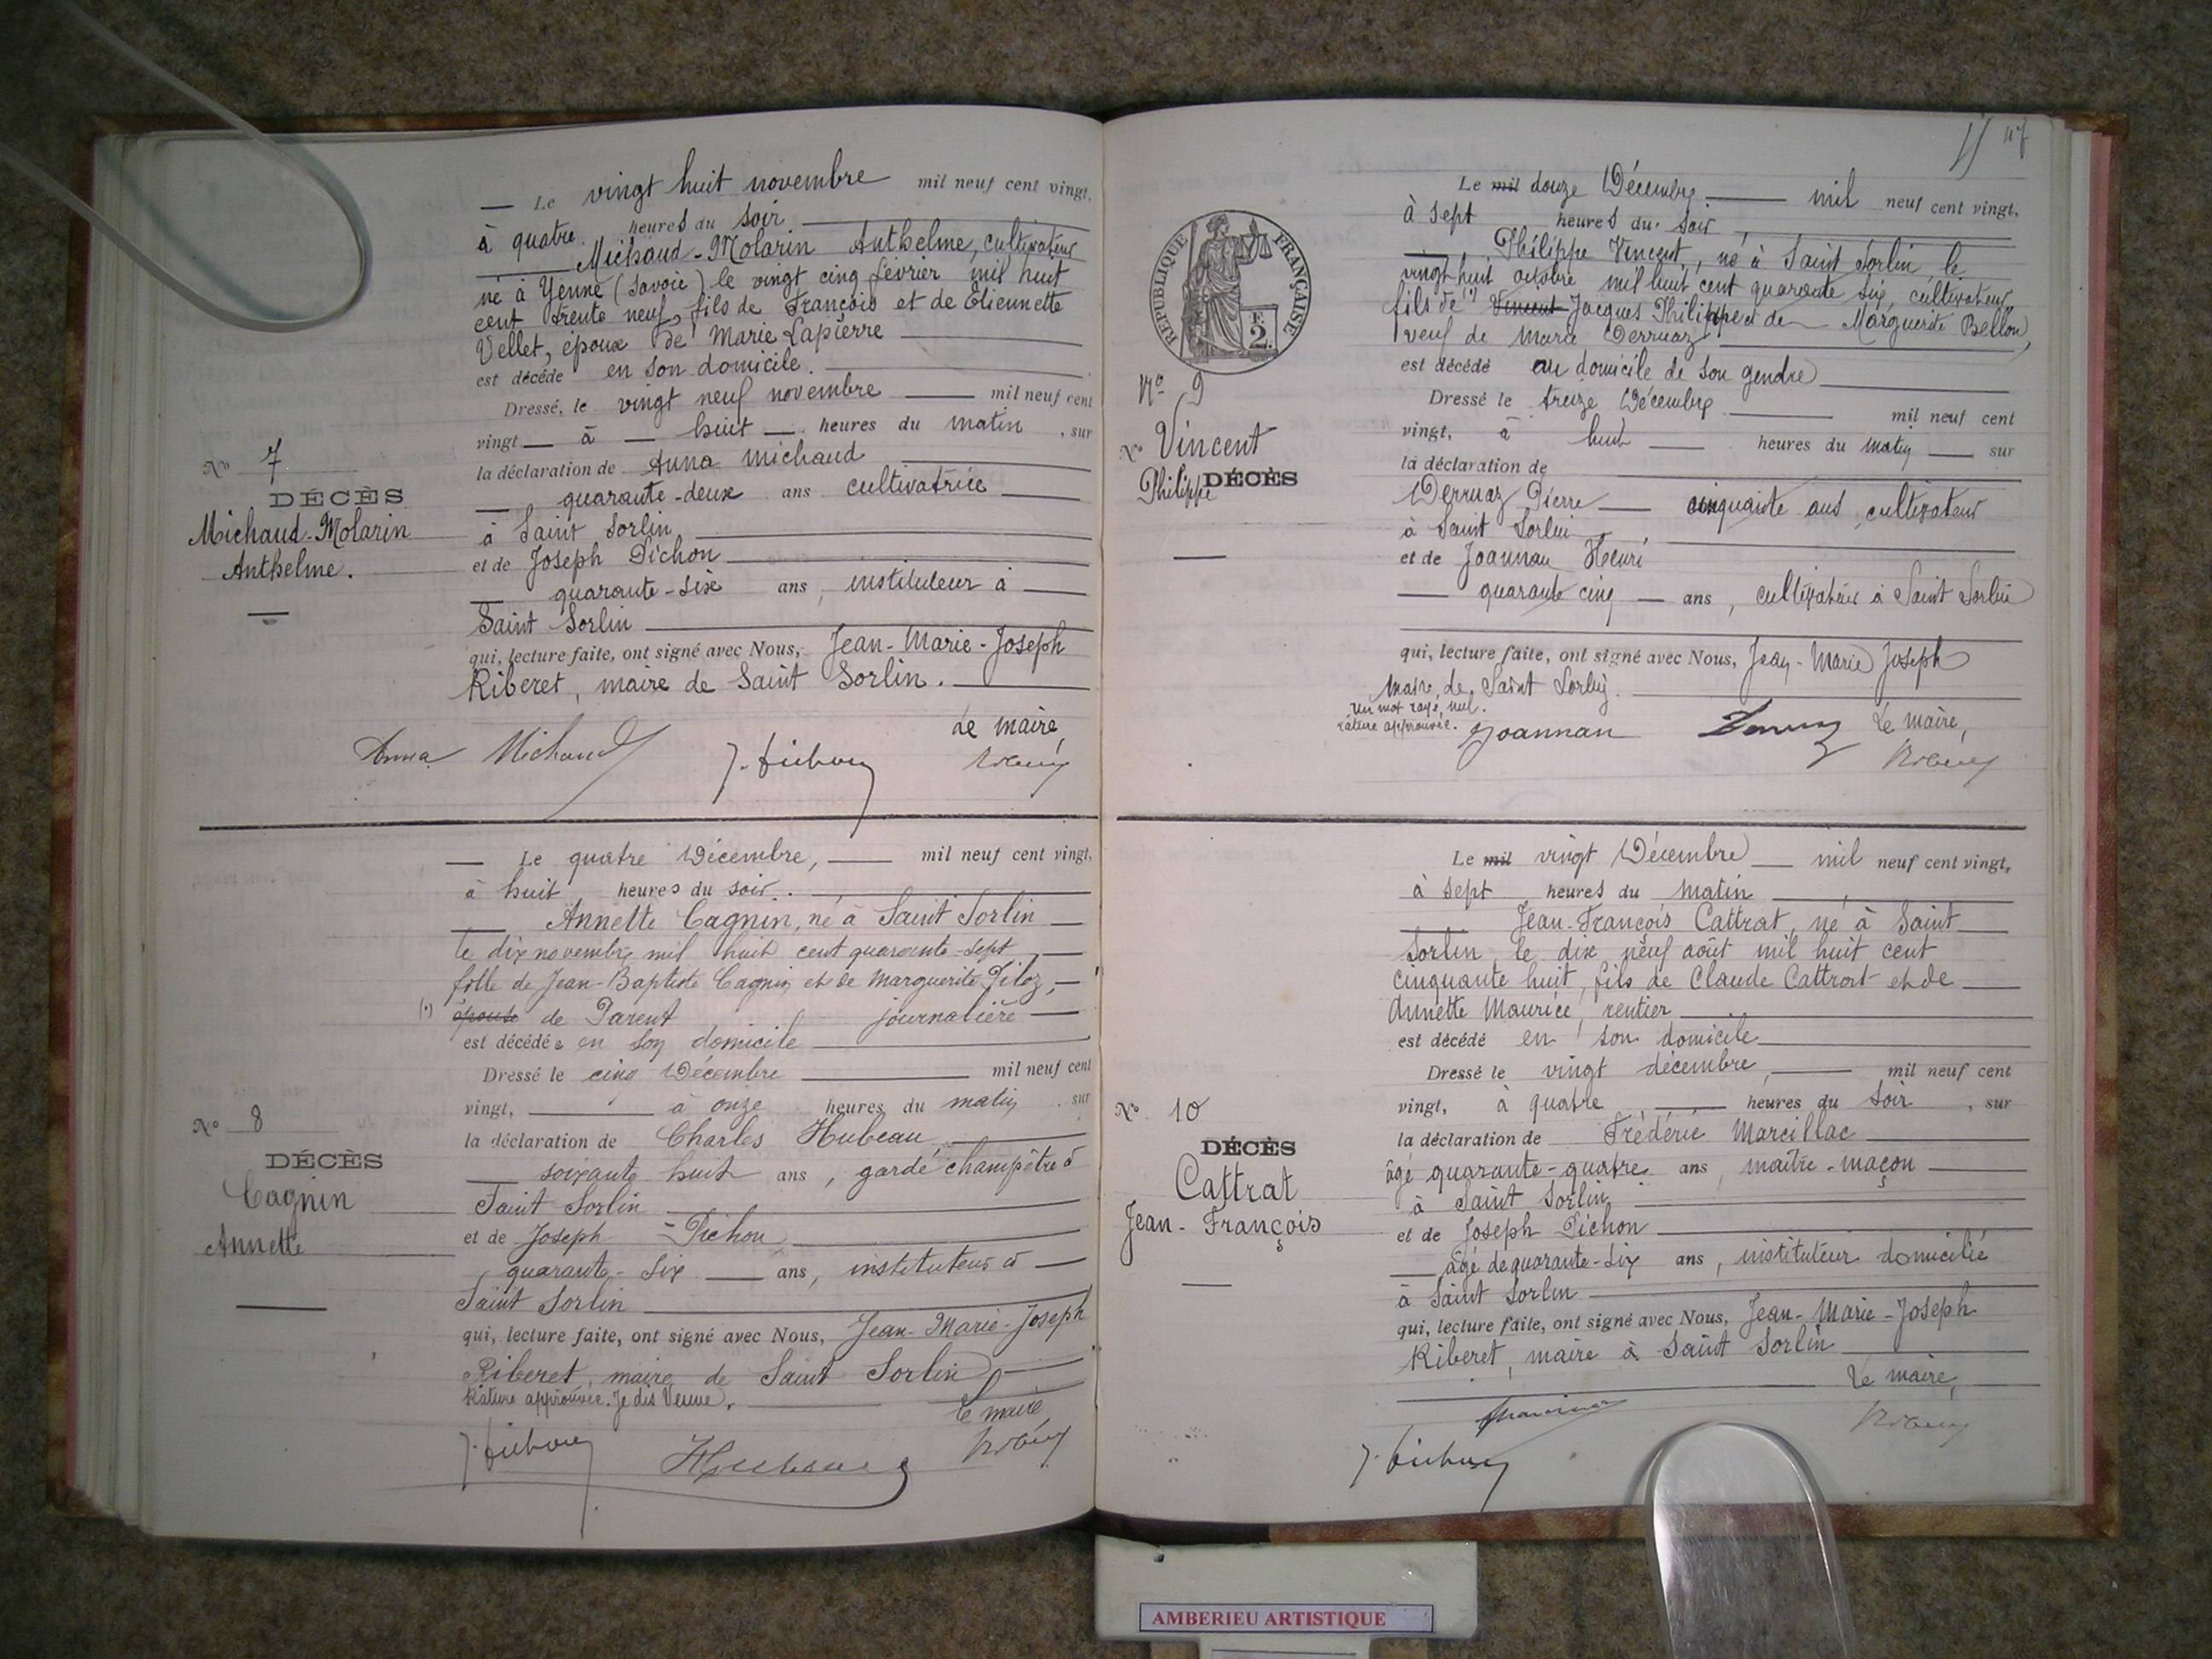 Le vingt huit novembre mil neuf cent vingt,
à quatre heures du soir
Michaud-Molarin Anthelme, cultivateur
né à Yenne (Savoie) le vingt cinq février mil huit
cent trente neuf, fils de François et de Etiennette
Vellet, époux de Marie Lapierre
est décédé en son domicile.
Dressé, le vingt neuf novembre mil neuf cent
vingt à huit heures du matin, sur
la déclaration de Anna Michaud
quarante-deux ans cultivatrice
à Saint Sorlin
et de Joseph Pichon
quarante-six ans, instituteur à
Saint Sorlin
qui, lecture faite, ont signé avec Nous, Jean-Marie-Joseph
Riberet, maire de Saint Sorlin.
Le maire,
Anna Michaud J. Pichon Riberet
No 7
DÉCÈS
Michaud-Molarin
Anthelme.
Le quatre Décembre, mil neuf cent vingt,
à huit heures du soir.
Annette Cagnin, né à Saint Sorlin
le dix novembre mil huit cent quarante-sept
fille de Jean-Baptiste Cagnin et de Marguerite Piloz,
(1) épouse de Parent journalière
est décédée en son domicile
Dressé le cinq Décembre mil neuf cent
vingt, à onze heures du matin, sur
la déclaration de Charles Hubeau
soixante huit ans, garde champêtre à
Saint Sorlin
et de Joseph Pichon
quarante-six ans, instituteur à
Saint Sorlin
qui, lecture faite, ont signé avec Nous, Jean-Marie-Joseph
Riberet, maire de Saint Sorlin
Rature approuvée. Je dis Veuve.
Le maire
J. Pichon Hubeau Riberet
No 8
DÉCÈS
Cagnin
Annette
47
Le mil douze Décembre mil neuf cent vingt,
à sept heures du soir,
Philippe Vincent, né à Saint Sorlin, le
vingt huit octobre mil huit cent quarante six, cultivateur,
fils de (1) Vincent Jacques Philippe et de Marguerite Bellon,
veuf de Marie Derruaz
est décédé au domicile de son gendre
Dressé le treize Décembre mil neuf cent
vingt, à huit heures du matin sur
la déclaration de
Derruaz Pierre cinquante ans, cultivateur
à Saint Sorlin
et de Joannan Henri
quarante cinq ans, cultivateur à Saint Sorlin
qui, lecture faite, ont signé avec Nous, Jean-Marie Joseph
maire de Saint Sorlin.
Un mot rayé nul.
rature approuvée.
Le maire,
Joannan Derruaz Riberet
REPUBLIQUE FRANÇAISE
F.
2.
No 9
No Vincent
Philippe DÉCÈS
Le mil vingt Décembre mil neuf cent vingt,
à sept heures du matin
Jean-François Cattrat, né à Saint
Sorlin le dix neuf août mil huit cent
cinquante huit, fils de Claude Cattrat et de
Annette Maurice, rentier
est décédé en son domicile
Dressé le vingt décembre, mil neuf cent
vingt, à quatre heures du soir, sur
la déclaration de Frédéric Marcillac
âgé quarante-quatre ans, maître-maçon
à Saint Sorlin,
et de Joseph Pichon
âgé de quarante-six ans, instituteur domicilié
à Saint Sorlin
qui, lecture faite, ont signé avec Nous, Jean-Marie-Joseph
Riberet, maire à Saint Sorlin
Le maire,
J. Pichon Riberet
No 10
DÉCÈS
Cattrat
Jean-François
AMBERIEU ARTISTIQUE